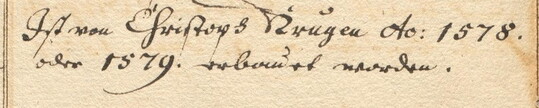 Ist von Christoph Krugen Ao: 1578.
oder 1579. erbauet worden.